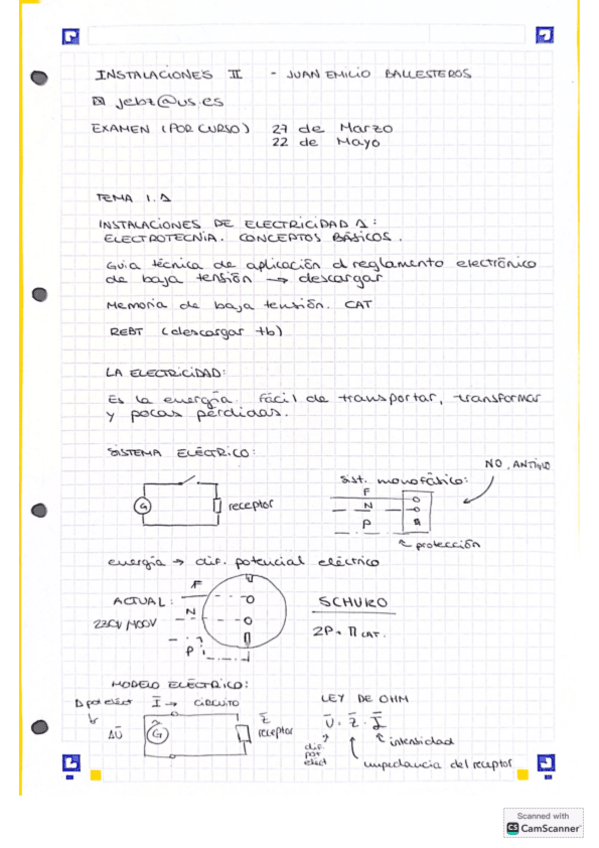 INSTALACIONES II - JUAN EMILIO BALLESTEROS
jebz@us.es
EXAMEN (POR CURSO) 27 de Marzo
22 de Mayo
TEMA 1.A
INSTALACIONES DE ELECTRICIDAD A:
ELECTROTECNIA. CONCEPTOS BÁSICOS.
Guia técnica de aplicación d reglamento electrónico
de baja tensión → descargar
Memoria de baja tensión. CAT
REBT (descargar tb)
LA ELECTRICIDAD:
Es la energía. Fácil de transportar, transformar
y pocas perdidas.
SISTEMA ELÉCTRICO:
NO, ANTIGUO
sist. monofásico:
F
G receptor N
P
protección
energía → dif. potencial eléctrico
F
ACTUAL: SCHUKO
N
230V/400V 2P+ CAT.
P
MODELO ELÉCTRICO: LEY DE OHM
Δ pot eléct I → CIRCUITO Z
ΔU G receptor U = Z · I
dif. pot eléct intensidad
impedancia del receptor
Scanned with
CS CamScanner